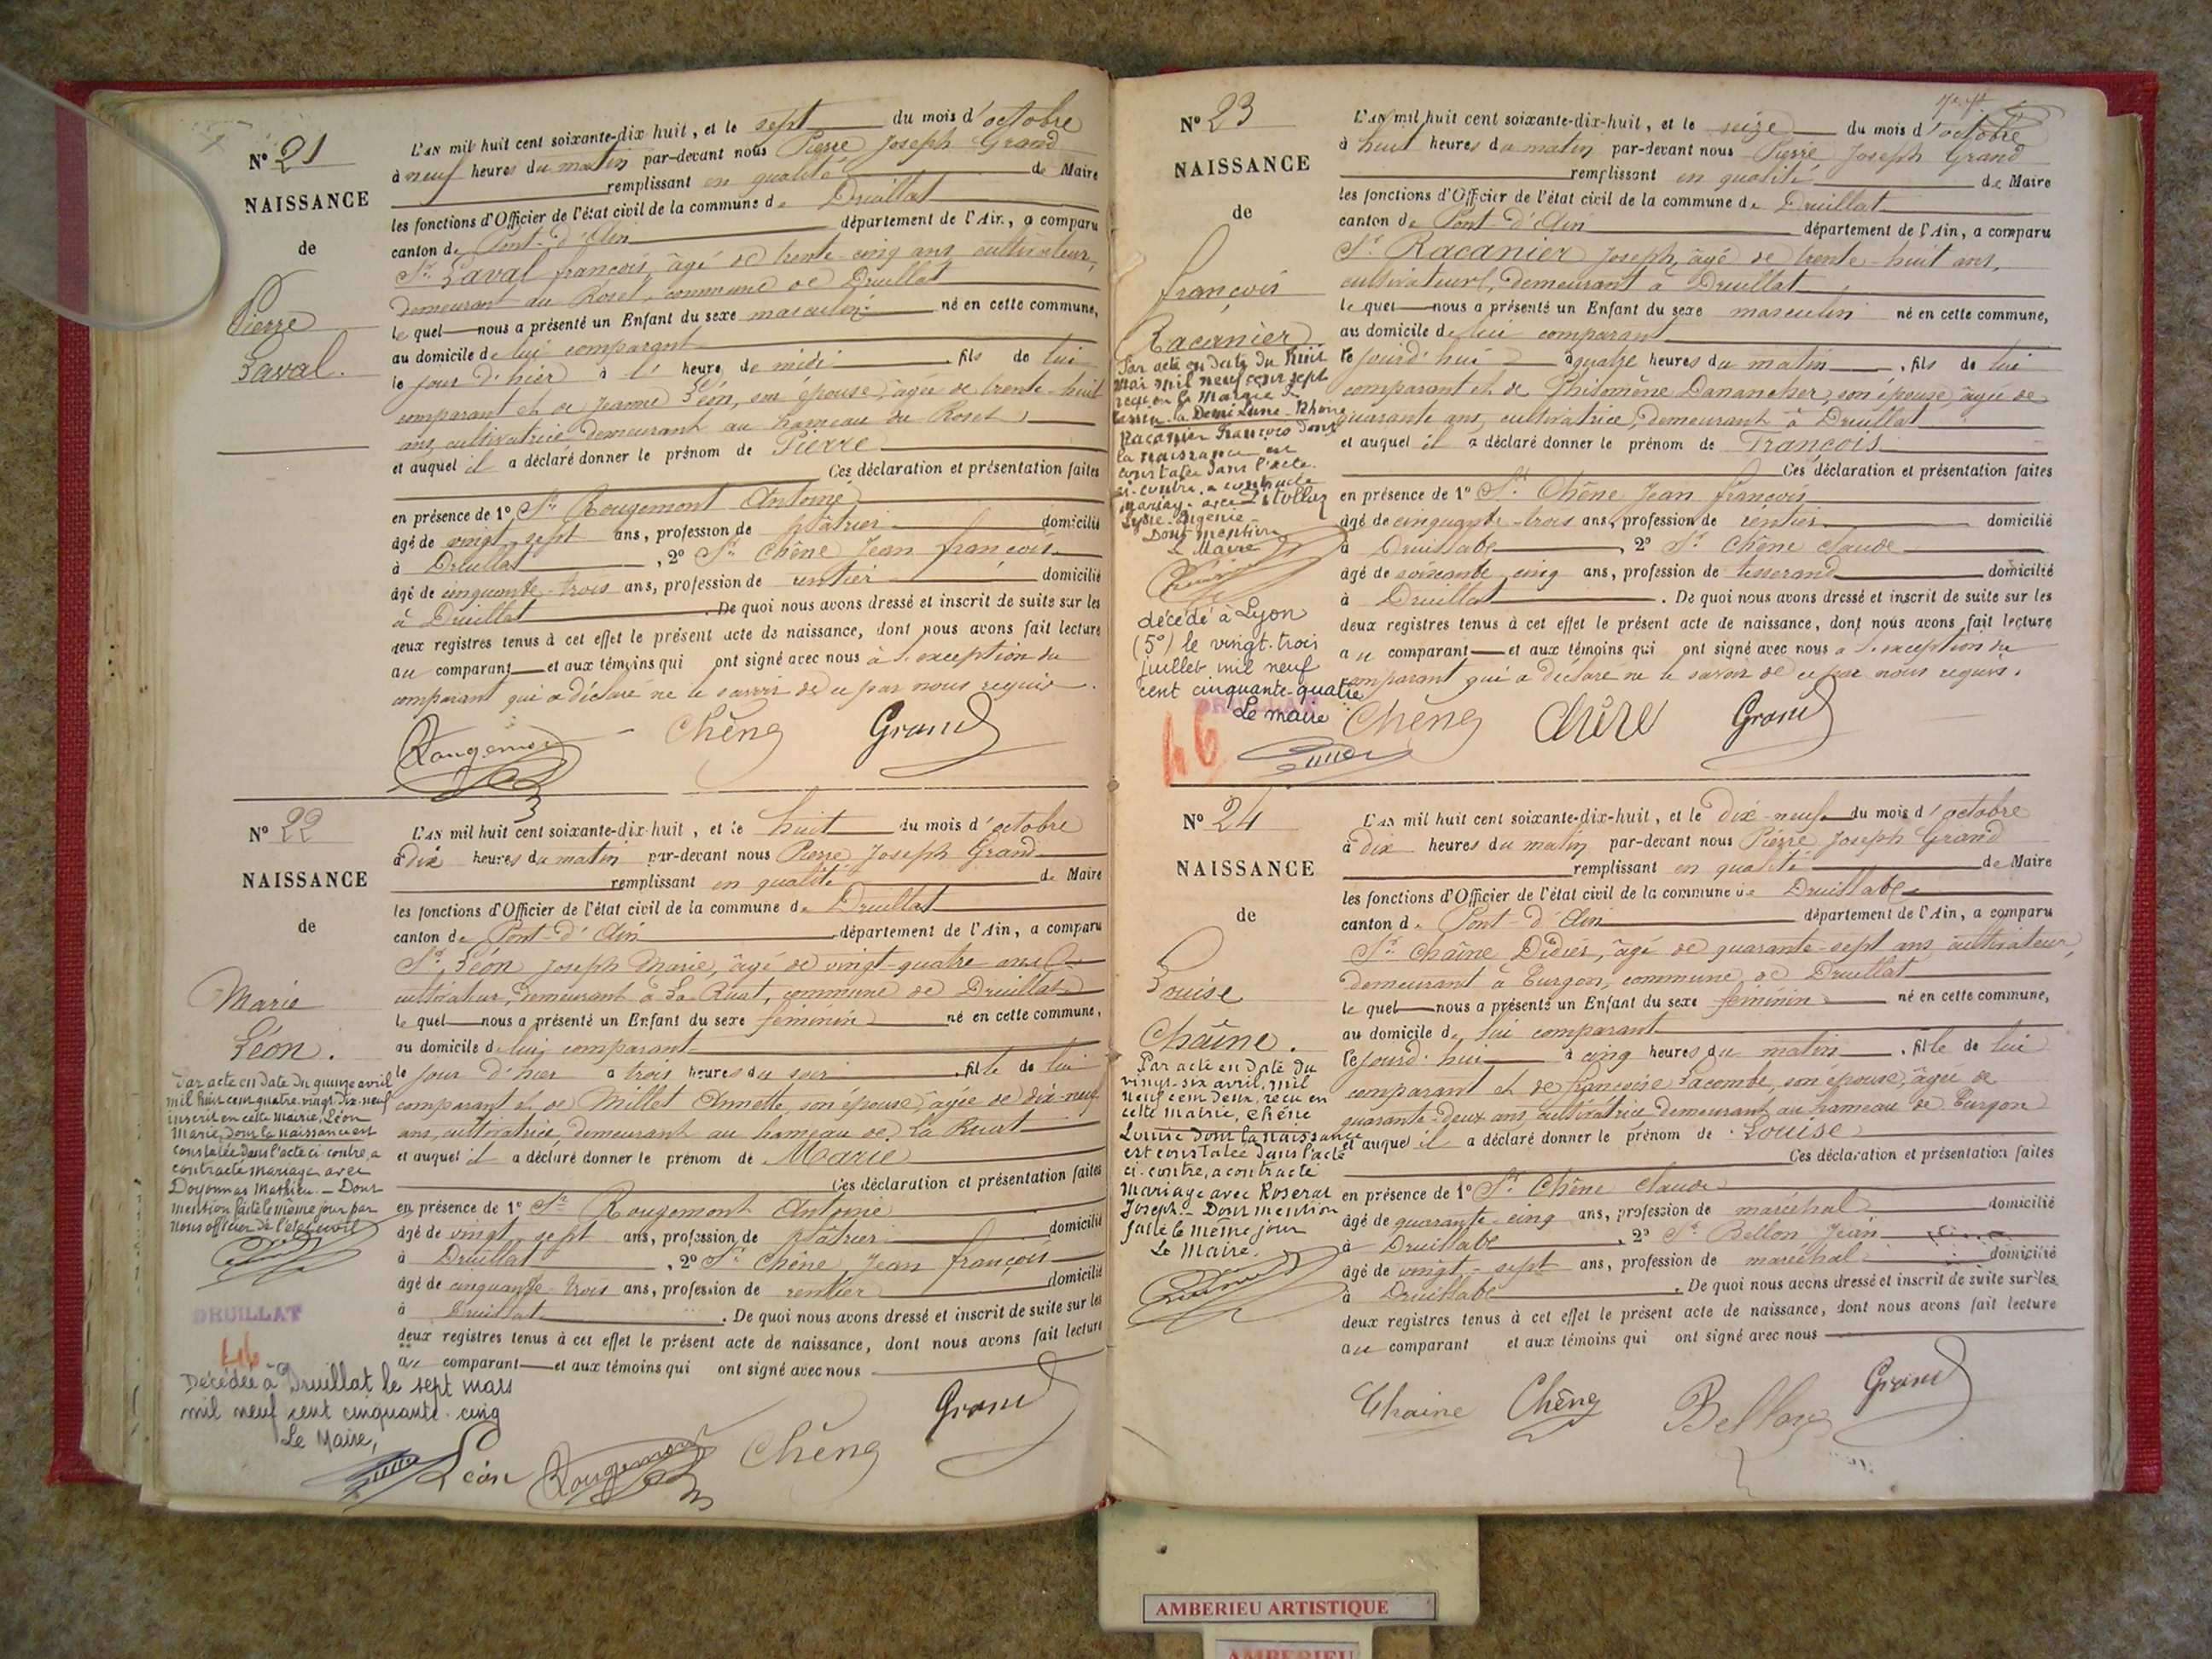 N° 21
NAISSANCE
de
Pierre
Laval.
L'AN mil huit cent soixante-dix huit, et le sept du mois d'octobre
à neuf heures du matin par-devant nous Pierre Joseph Grand
remplissant en qualité de Maire
les fonctions d'Officier de l'état civil de la commune de Druillat
canton de Pont-d'Ain département de l'Ain, a comparu
Sr Laval françois, âgé de trente-cinq ans, cultivateur,
demeurant au Roset, commune de Druillat
le quel nous a présenté un Enfant du sexe masculin né en cette commune,
au domicile de lui comparant
le jour d'hier à l' heure de midi fils de lui
comparant et de Jeanne Léon, son épouse, âgée de trente-huit
ans, cultivatrice demeurant au hameau du Roset
et auquel il a déclaré donner le prénom de Pierre
Ces déclaration et présentation faites
en présence de 1° Sr Rougemont Antoine
âgé de vingt-sept ans, profession de plâtrier domicilié
à Druillat, 2° Sr Chêne Jean françois
âgé de cinquante-trois ans, profession de rentier domicilié
à Druillat. De quoi nous avons dressé et inscrit de suite sur les
deux registres tenus à cet effet le présent acte de naissance, dont nous avons fait lecture
au comparant et aux témoins qui ont signé avec nous à l'exception du
comparant qui a déclaré ne le savoir de ce par nous requis.
Rougemont Chêne Grand
N° 22
NAISSANCE
de
Marie
Léon.
Par acte en date du quinze avril
mil huit cent quatre-vingt-dix-neuf
inscrit en cette Mairie, Léon
Marie, dont la naissance est
constatée dans l'acte ci-contre, a
contracté mariage avec
Doyonnas Mathieu. - Dont
mention faite le même jour par
nous officier de l'état civil
DRUILLAT
46
Décédée à Druillat le sept mars
mil neuf cent cinquante-cinq
Le Maire,
L'AN mil huit cent soixante-dix-huit, et le huit du mois d'octobre
à dix heures du matin par-devant nous Pierre Joseph Grand
remplissant en qualité de Maire
les fonctions d'Officier de l'état civil de la commune de Druillat
canton de Pont-d'Ain département de l'Ain, a comparu
Sr Léon Joseph Marie, âgé de vingt-quatre ans
cultivateur, demeurant à La Ruat, commune de Druillat
le quel nous a présenté un Enfant du sexe féminin né en cette commune,
au domicile de lui comparant
le jour d'hier à trois heures du soir fille de lui
comparant et de Millet Annette, son épouse, âgée de dix-neuf
ans, cultivatrice, demeurant au hameau de La Ruat
et auquel il a déclaré donner le prénom de Marie
Ces déclaration et présentation faites
en présence de 1° Sr Rougemont Antoine
âgé de vingt-sept ans, profession de plâtrier domicilié
à Druillat, 2° Sr Chêne Jean françois
âgé de cinquante-trois ans, profession de rentier domicilié
à Druillat. De quoi nous avons dressé et inscrit de suite sur les
deux registres tenus à cet effet le présent acte de naissance, dont nous avons fait lecture
au comparant et aux témoins qui ont signé avec nous
Léon Rougemont Chêne Grand
N° 23
NAISSANCE
de
françois
Racanier
Par acte en date du huit
mai mil neuf cent sept
reçu en la Mairie de
Tassin-la Demi Lune-Rhône
Racanier François dont
la naissance est
constatée dans l'acte
ci-contre, a contracté
mariage avec
Eugénie
Dont mention
Le Maire
décédé à Lyon
(5°) le vingt-trois
juillet mil neuf
cent cinquante-quatre
DRUILLAT
Le maire
46
L'AN mil huit cent soixante-dix-huit, et le seize du mois d'octobre
à huit heures du matin par-devant nous Pierre Joseph Grand
remplissant en qualité de Maire
les fonctions d'Officier de l'état civil de la commune de Druillat
canton de Pont-d'Ain département de l'Ain, a comparu
Sr Racanier Joseph, âgé de trente-huit ans,
cultivateur, demeurant à Druillat
le quel nous a présenté un Enfant du sexe masculin né en cette commune,
au domicile de lui comparant
ce jourd'hui à quatre heures du matin, fils de lui
comparant et de Philomène Danancher, son épouse, âgée de
quarante ans, cultivatrice, demeurant à Druillat
et auquel il a déclaré donner le prénom de François
Ces déclaration et présentation faites
en présence de 1° Sr Chêne Jean françois
âgé de cinquante-trois ans, profession de rentier domicilié
à Druillat, 2° Sr Chêne Claude
âgé de soixante cinq ans, profession de tisserand domicilié
à Druillat. De quoi nous avons dressé et inscrit de suite sur les
deux registres tenus à cet effet le présent acte de naissance, dont nous avons fait lecture
au comparant et aux témoins qui ont signé avec nous à l'exception du
comparant qui a déclaré ne le savoir de ce par nous requis.
Chêne Chêne Grand
N° 24
NAISSANCE
de
Louise
Chaîne.
Par acte en date du
vingt-six avril mil
neuf cent deux, reçu en
cette mairie, Chêne
Louise dont la naissance
est constatée dans l'acte
ci-contre, a contracté
mariage avec Roserat
Joseph. - Dont mention
faite le même jour
Le Maire.
L'AN mil huit cent soixante-dix-huit, et le dix-neuf du mois d'octobre
à dix heures du matin par-devant nous Pierre Joseph Grand
remplissant en qualité de Maire
les fonctions d'Officier de l'état civil de la commune de Druillat
canton de Pont-d'Ain département de l'Ain, a comparu
Sr Chaîne Didier, âgé de quarante-sept ans, cultivateur,
demeurant à Turgon, commune de Druillat
le quel nous a présenté un Enfant du sexe féminin né en cette commune,
au domicile de lui comparant
ce jourd'hui à cinq heures du matin, fille de lui
comparant et de françoise Lacombe, son épouse, âgée de
quarante-deux ans, cultivatrice demeurant au hameau de Turgon
et auquel il a déclaré donner le prénom de Louise
Ces déclaration et présentation faites
en présence de 1° Sr Chêne Claude
âgé de quarante-cinq ans, profession de maréchal domicilié
à Druillat, 2° Sr Bellon Jean
âgé de vingt-sept ans, profession de maréchal domicilié
à Druillat. De quoi nous avons dressé et inscrit de suite sur les
deux registres tenus à cet effet le présent acte de naissance, dont nous avons fait lecture
au comparant et aux témoins qui ont signé avec nous
Chaine Chêne Bellon Grand
AMBERIEU ARTISTIQUE
AMBERIEU